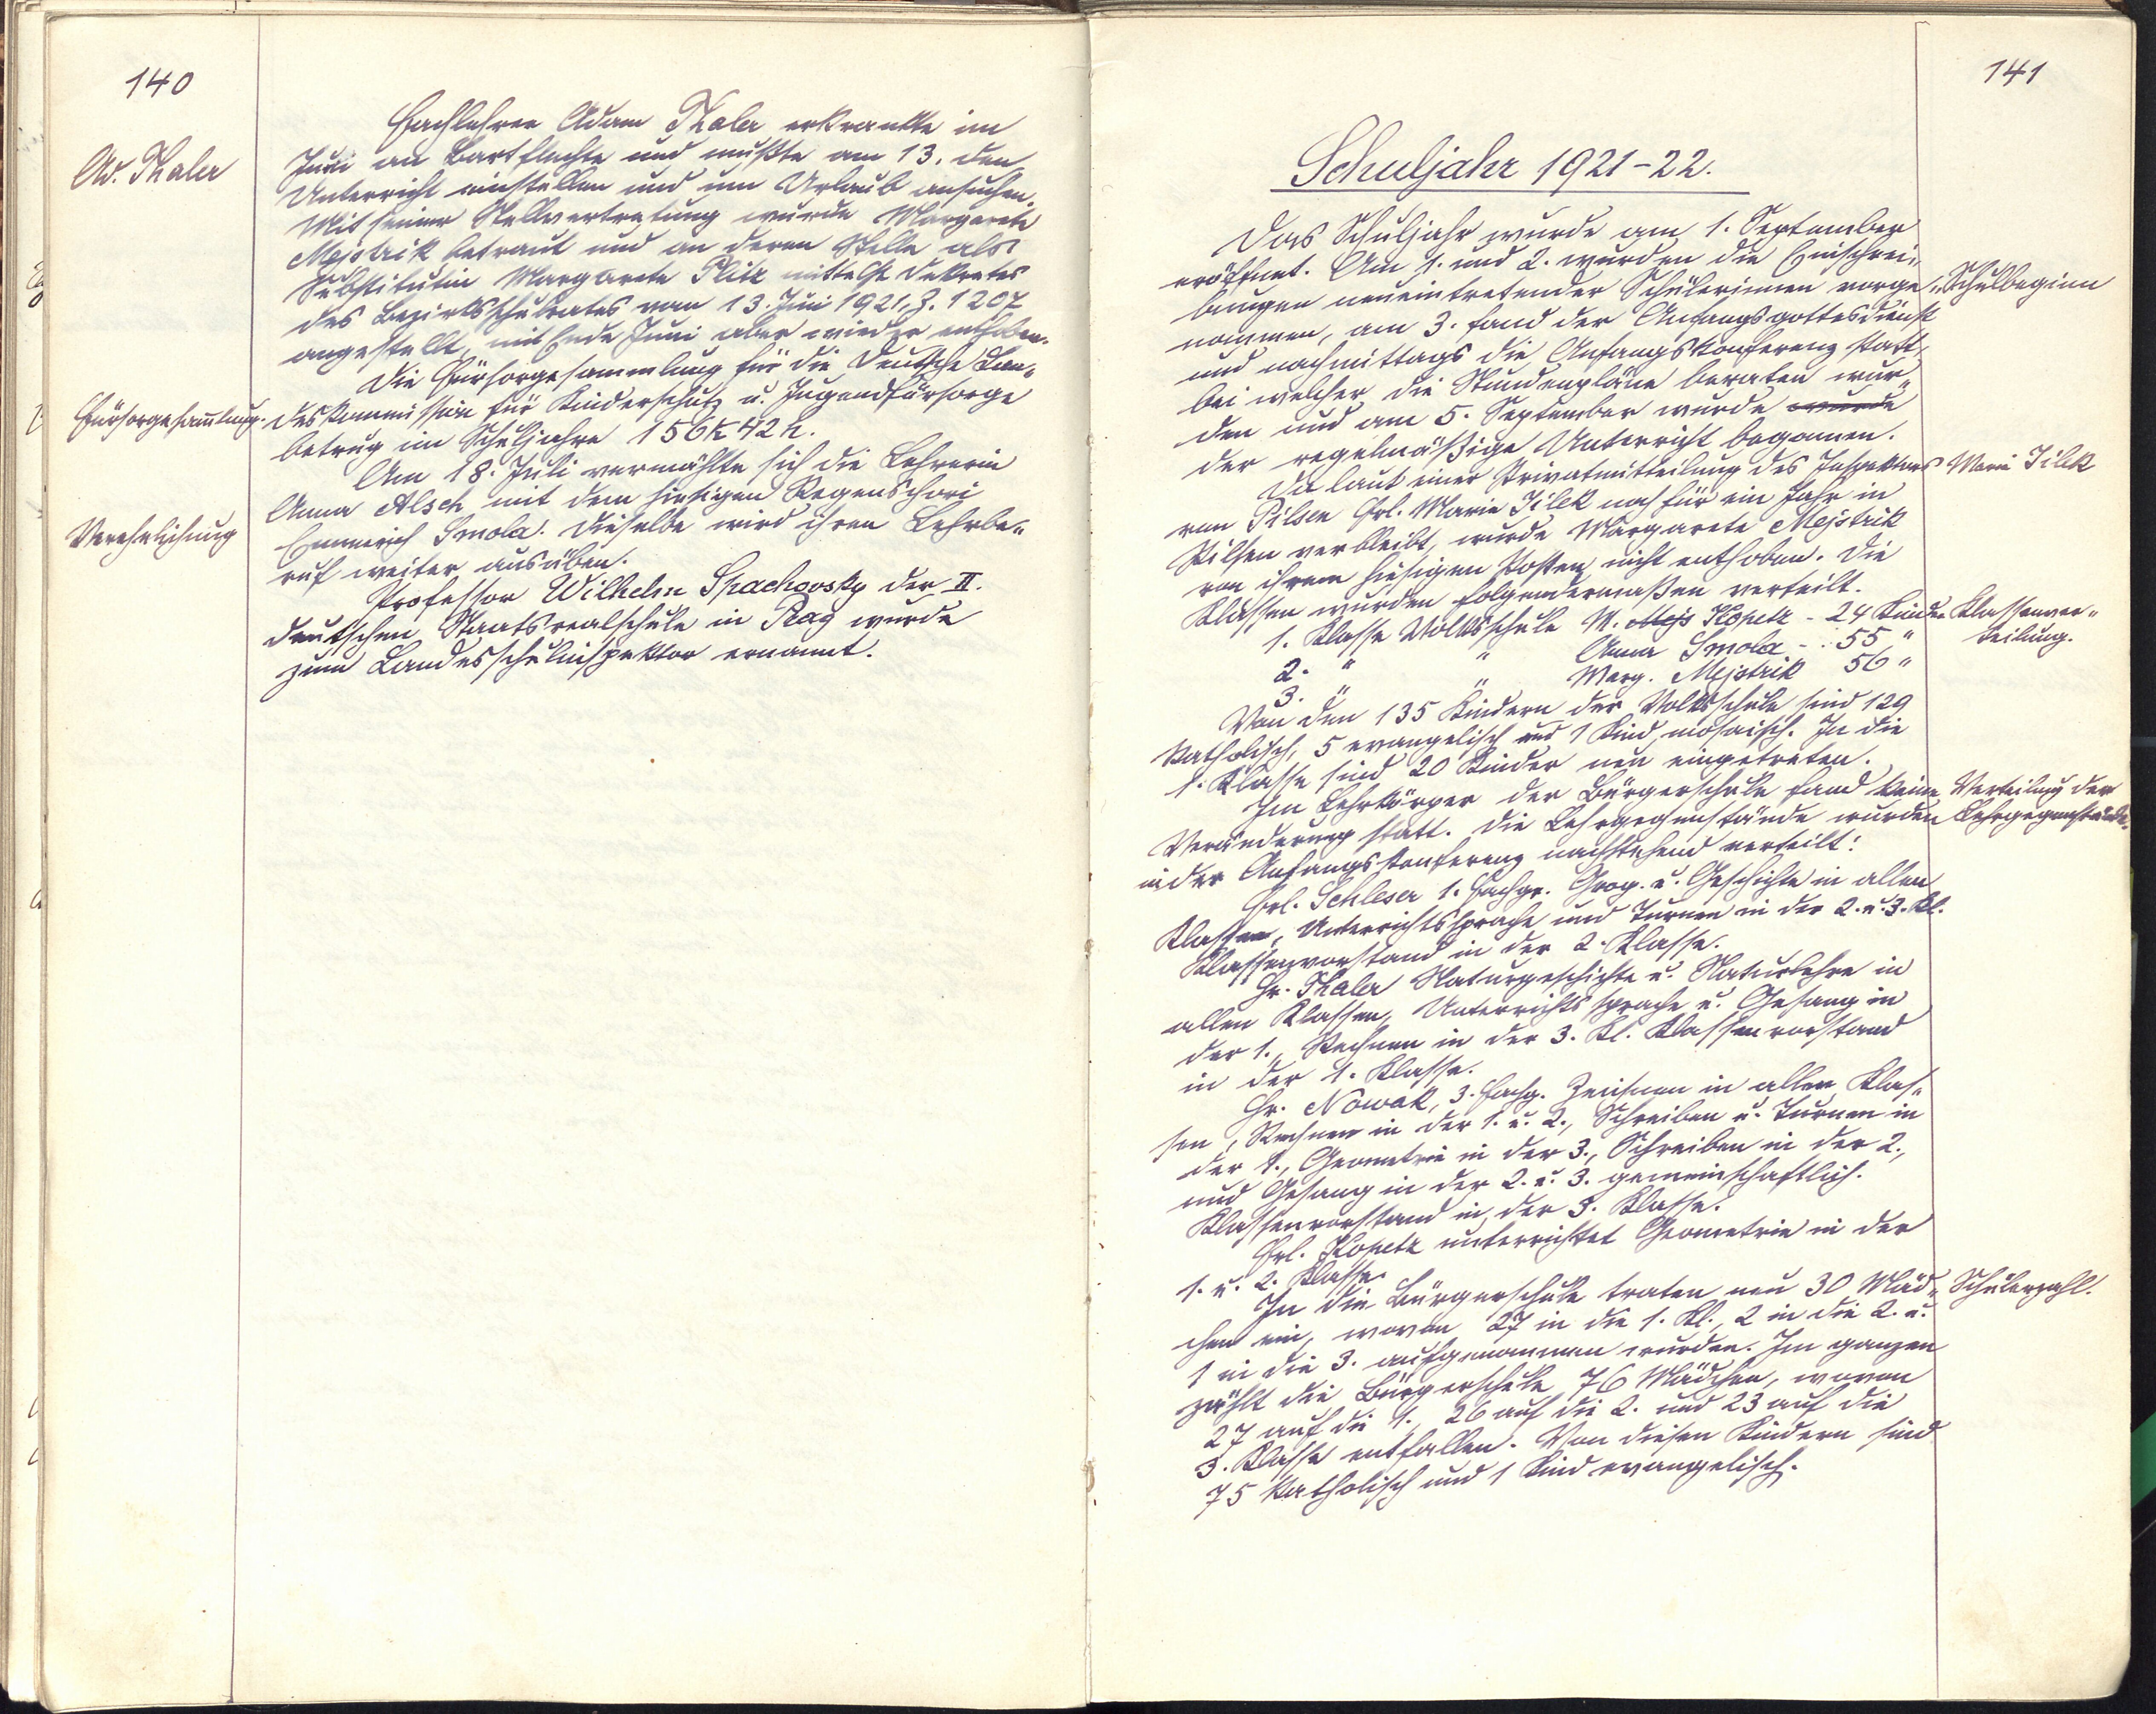 140
Ad. Thaler
Fachlehrer Adam Thaler erkrankte im
Juni an Bartflechte und mußte am 13. den
Unterricht einstellen und um Urlaub ansuchen.
Mit seiner Stellvertretung wurde Margarete
Mejstrik betraut und an deren Stelle als
Substitutin Margarete Plitz mittelst Dekretes
des Bezirksschulrates vom 13. Juni 1921, Z. 1207
angestellt, mit Ende Juni aber wieder enthoben.
Die Fürsorgesammlung für die Deutsche Lan-
Fürsorgesammlung.
deskommission für Kinderschutz u. Jugendfürsorge
betrug im Schuljahre 156K 42h.
Am 18. Juli vermählte sich die Lehrerin
Anna Alsch mit dem hiesigen Regenschori
Verehelichung
Emmerich Smola. Dieselbe wird ihren Lehrbe-
ruf weiter ausüben.
Professor Wilhelm Spachovsky der II.
deutschen Staatsrealschule in Prag wurde
zum Landesschulinspektor ernannt.
141
Schuljahr 1921-22.
Das Schuljahr wurde am 1. September
eröffnet. Am 1. und 2. wurden die Einschrei-
bungen neueintretender Schülerinnen vorge-
Schulbeginn
nommen, am 3. fand der Anfangsgottesdienst
und nachmittags die Anfangskonferenz statt,
bei welcher die Stundenpläne beraten wur-
den und am 5. September wurde wurde
der regelmäßige Unterricht begonnen.
Da laut einer Privatmitteilung des Inspektors
Marie Jilek
von Pilsen Frl. Marie Jilek noch für ein Jahr in
Pilsen verbleibt, wurde Margarete Mejstrik
von ihrem hiesigen Posten nicht enthoben. Die
Klassen wurden folgendermaßen verteilt.
1. Klasse Volksschule M. Mejs Kopetz - 24 Kinder
Klassenver-
teilung.
2. " " Anna Smola - 55 "
3. " " Marg. Mejstrik 56 "
Von den 135 Kindern der Volksschule sind 129
katholisch, 5 evangelisch und 1 Kind mosaisch. In die
1. Klasse sind 20 Kinder neu eingetreten.
Im Lehrkörper der Bürgerschule fand keine
Verteilung der
Veränderung statt. Die Lehrgegenstände wurden
Lehrgegenstände.
in der Anfangskonferenz nachstehend verteilt:
Frl. Schleser 1. Fachgr. Geog. u. Geschichte in allen
Klassen, Unterrichtssprache und Turnen in der 2. u. 3. Kl.
Klassenvorstand in der 2. Klasse.
Hr. Thaler Naturgeschichte u. Naturlehre in
allen Klassen, Unterrichtssprache u. Gesang in
der 1., Rechnen in der 3. Kl. Klassenvorstand
in der 1. Klasse.
Hr. Nowak, 3. Fachg. Zeichnen in allen Klas-
sen, Rechnen in der 1. u. 2., Schreiben u. Turnen in
der 1., Geometrie in der 3., Schreiben in der 2.,
und Gesang in der 2. u. 3. gemeinschaftlich.
Klassenvorstand in der 3. Klasse.
Frl. Kopetz unterrichtet Geometrie in der
1. u. 2. Klasse.
In die Bürgerschule traten neu 30 Mäd-
Schülerzahl.
chen ein, wovon 27 in die 1. Kl., 2 in die 2. u.
1 in die 3. aufgenommen wurden. Im ganzen
zählt die Bürgerschule 76 Mädchen, wovon
27 auf die 1., 26 auf die 2. und 23 auf die
3. Klasse entfallen. Von diesen Kindern sind
75 katholisch und 1 Kind evangelisch.